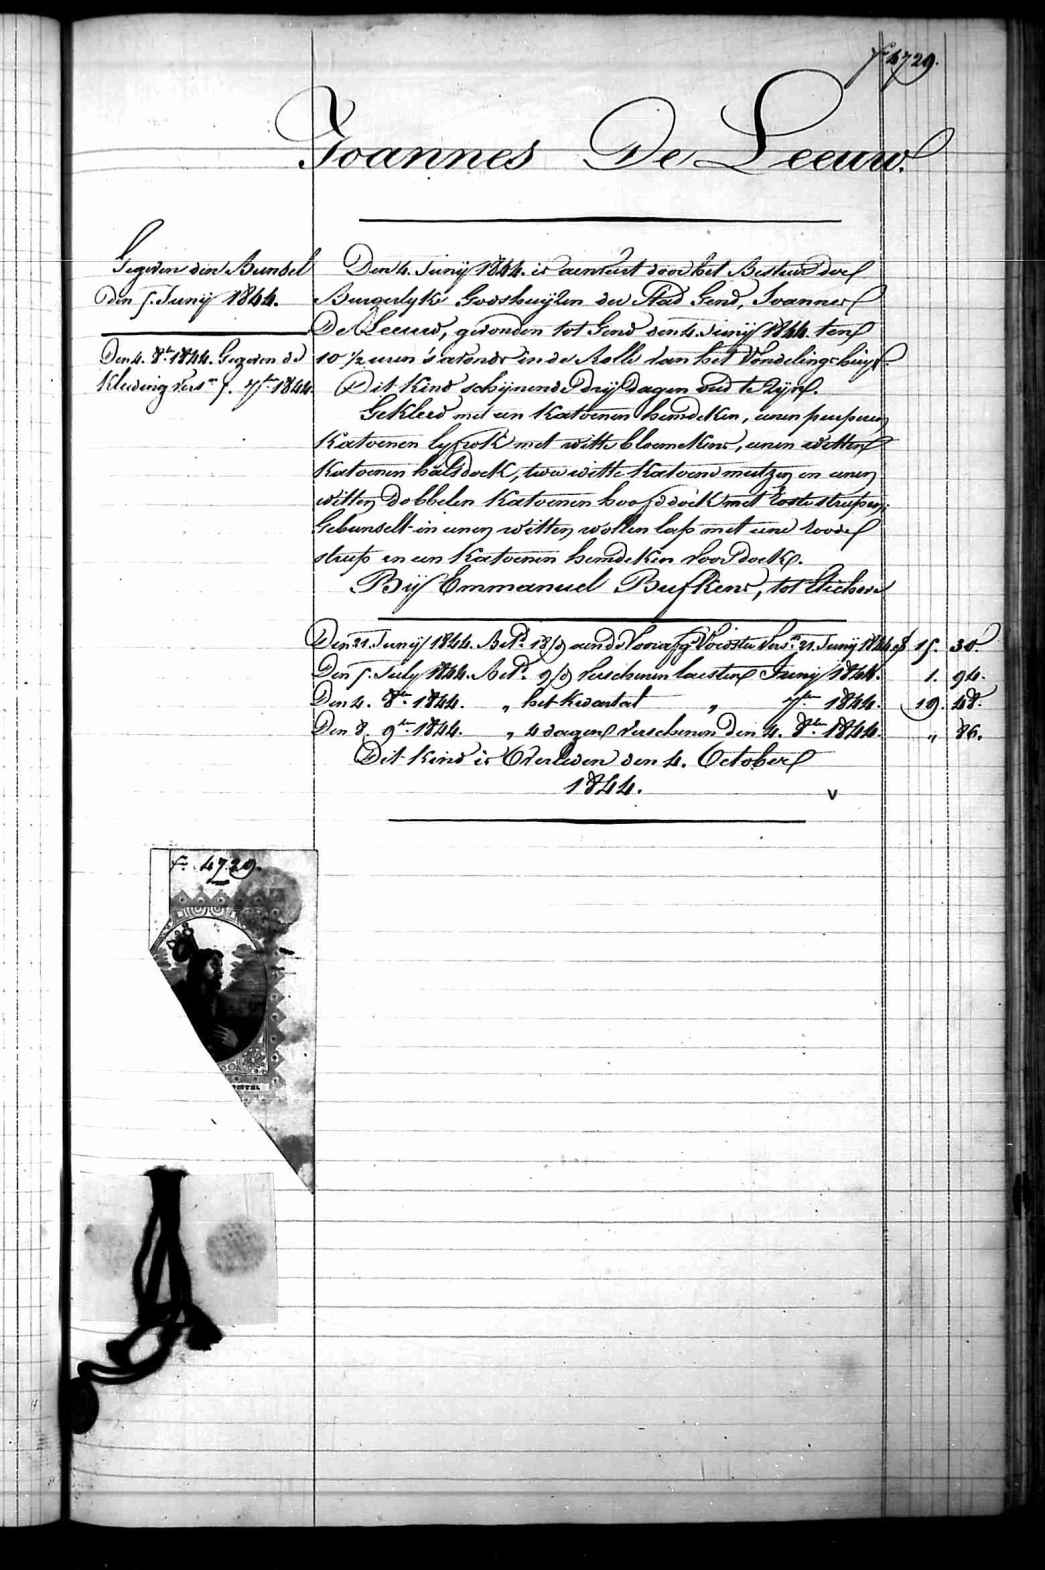 fo 4729.
Joannes De Leeuw.
Gegeven den Bundel
den 5. Junij 1844.
Den 4. 8br 1844. Gegeven de
Kleeding vers
1844.
Den 4. Junij 1844. is aenveirt door het Bestuur der
Burgerlyke Godshuijzen der Stad Gend, Joannes
De Leeuw, gevonden tot Gend den 4. Junij 1844. ten
10 ½ uren 's avonds in de Rolle van het Vondelinghuys.
Dit Kind schijnende drij dagen oud te zijn.
Gekleed met een Katoenen hemdeken, eenen purperen
Katoenen lyfrok met witte bloemekens, eenen witten
Katoenen halsdoek, twee witte Katoene mutzen en eenen
witten dobbelen Katoenen hoofddoek met strepen,
Gebunselt in eenen witten wollen lap met eene roode
streep en een Katoenen hemdeken voor doek.
Bij Emmanuel Buskens, tot
Den 21. Junij 1844. Betd. 18/9 21. Junij 1844 15. 30
Den 5. July 1844. Betd. 9/9 verschenen laesten Junij 1844. 1. 94.
Den 4. 8br 1844. „ het kwartael „ 7br 1844. 19. 48.
Den 8. 9br 1844. „ 4 dagen verschenen den 4. 8br 1844. „ 86.
Dit Kind is Overleden den 4. October
1844.
v
fo 4729.